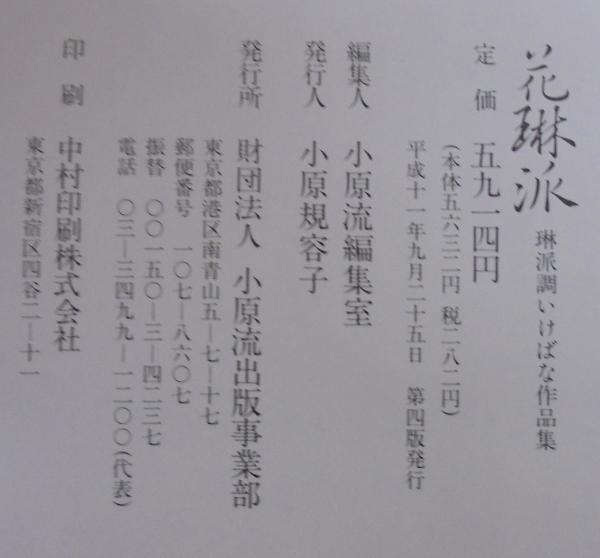 花琳派 琳派調いけばな作品集
定価 五九一四円
(本体五六三二円 税二八二円)
平成十一年九月二十五日 第四版発行
編集人 小原流編集室
発行人 小原規容子
発行所 財団法人 小原流出版事業部
東京都港区南青山五―七―十七
郵便番号 一〇七―八六〇七
振替 〇〇一五〇―三―四二三七
電話 〇三―三四九九―一二〇〇(代表)
印刷 中村印刷株式会社
東京都新宿区四谷二―十一